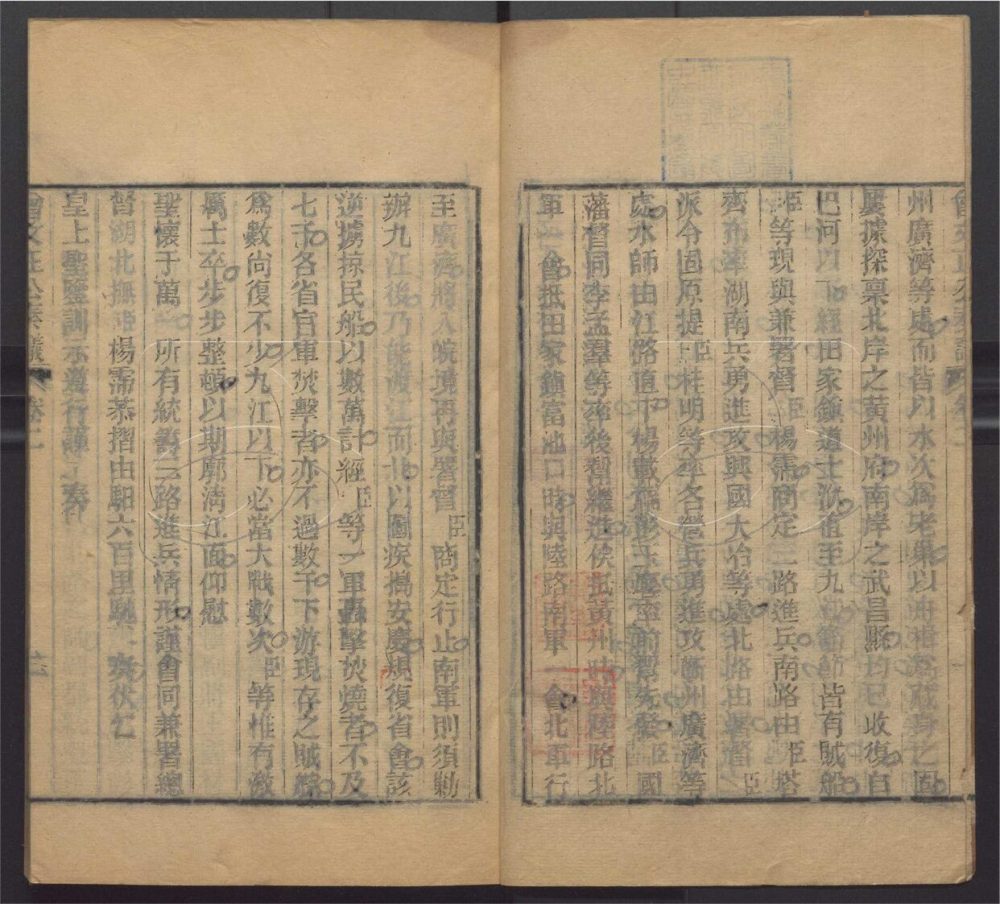 州廣濟等處而皆以水次為老巢以舟楫為藏身之固
屢據探稟北岸之黃州府南岸之武昌縣均已收復自
巴河以下經田家鎮道士洑直至九江節節皆有賊船
臣等現與兼署督臣楊霈商定三路進兵南路由臣塔
齊布率湖南兵勇進攻興國大冶等處北路由署督臣
派令固原提臣桂明等率各營兵勇進攻蘄州廣濟等
處水師由江路直下楊載福彭玉麐率前幫先發臣國
藩督同李孟羣等率後幫繼進俟抵黃州時與陸路北
軍一會抵田家鎮富池口時與陸路南軍一會北軍行
至廣濟將入皖境再與署督臣商定行止南軍則須勦
辦九江後乃能渡江而北以圖疾搗安慶規復省會該
逆擄掠民船以數萬計經臣等一軍轟擊焚燒者不及
七千各省官軍焚擊者亦不過數千下游現存之賊艅
為數尚復不少九江以下必當大戰數次臣等惟有激
厲士卒步步整頓以期廓清江面仰慰
聖懷于萬一所有統籌三路進兵情形謹會同兼署總
督湖北撫臣楊霈恭摺由馹六百里馳奏伏乞
皇上聖鑒訓示遵行謹奏
曾文正公奏議 卷二